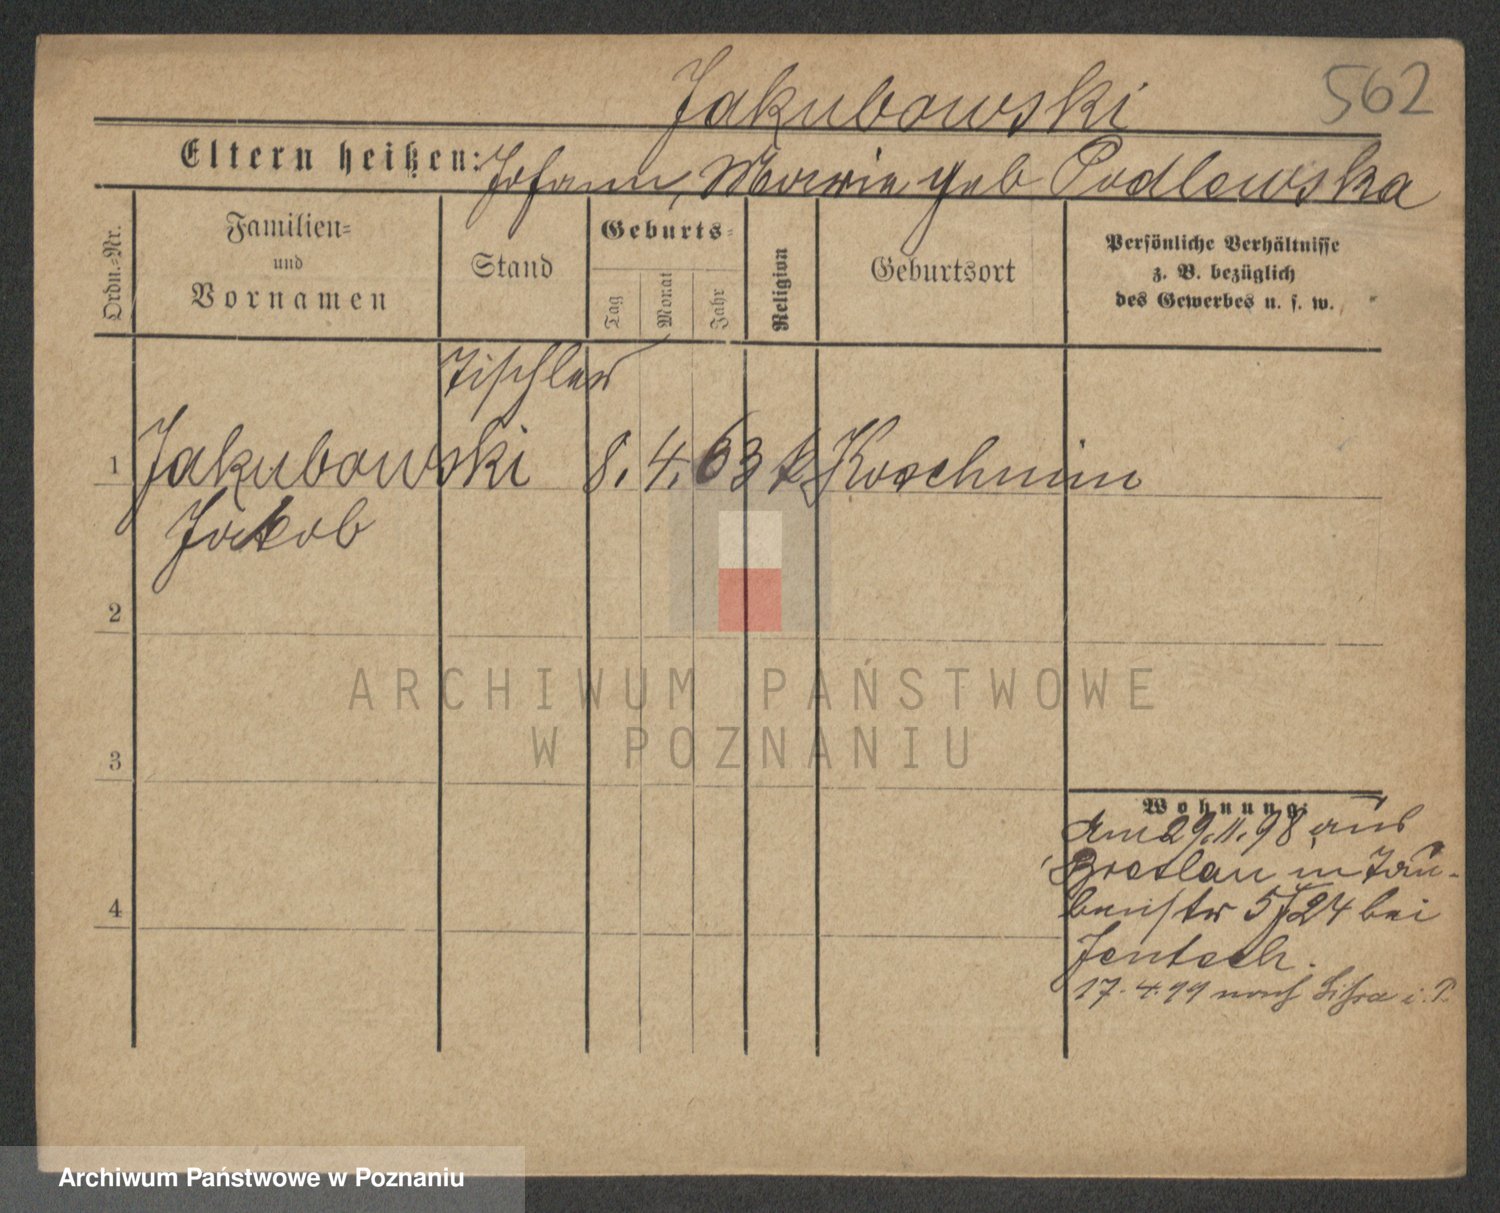 562
Jakubowski
Eltern heißen: Johann, Marie geb Podlewska
Ordn.-Nr.
Familien-
und
Vornamen
Stand
Geburts-
Tag
Monat
Jahr
Religion
Geburtsort
Persönliche Verhältnisse
z. B. bezüglich
des Gewerbes u. s. w.
Tischler
1 Jakubowski 8. 4. 63 k. Koschmin
Jakob
2
3
4
Wohnung:
Am 29.11.98 aus
Breslau in Tau-
benstr 5/24 bei
Jentsch.
17.4.99 nach Lissa i. P.
ARCHIWUM PAŃSTWOWE
W POZNANIU
Archiwum Państwowe w Poznaniu